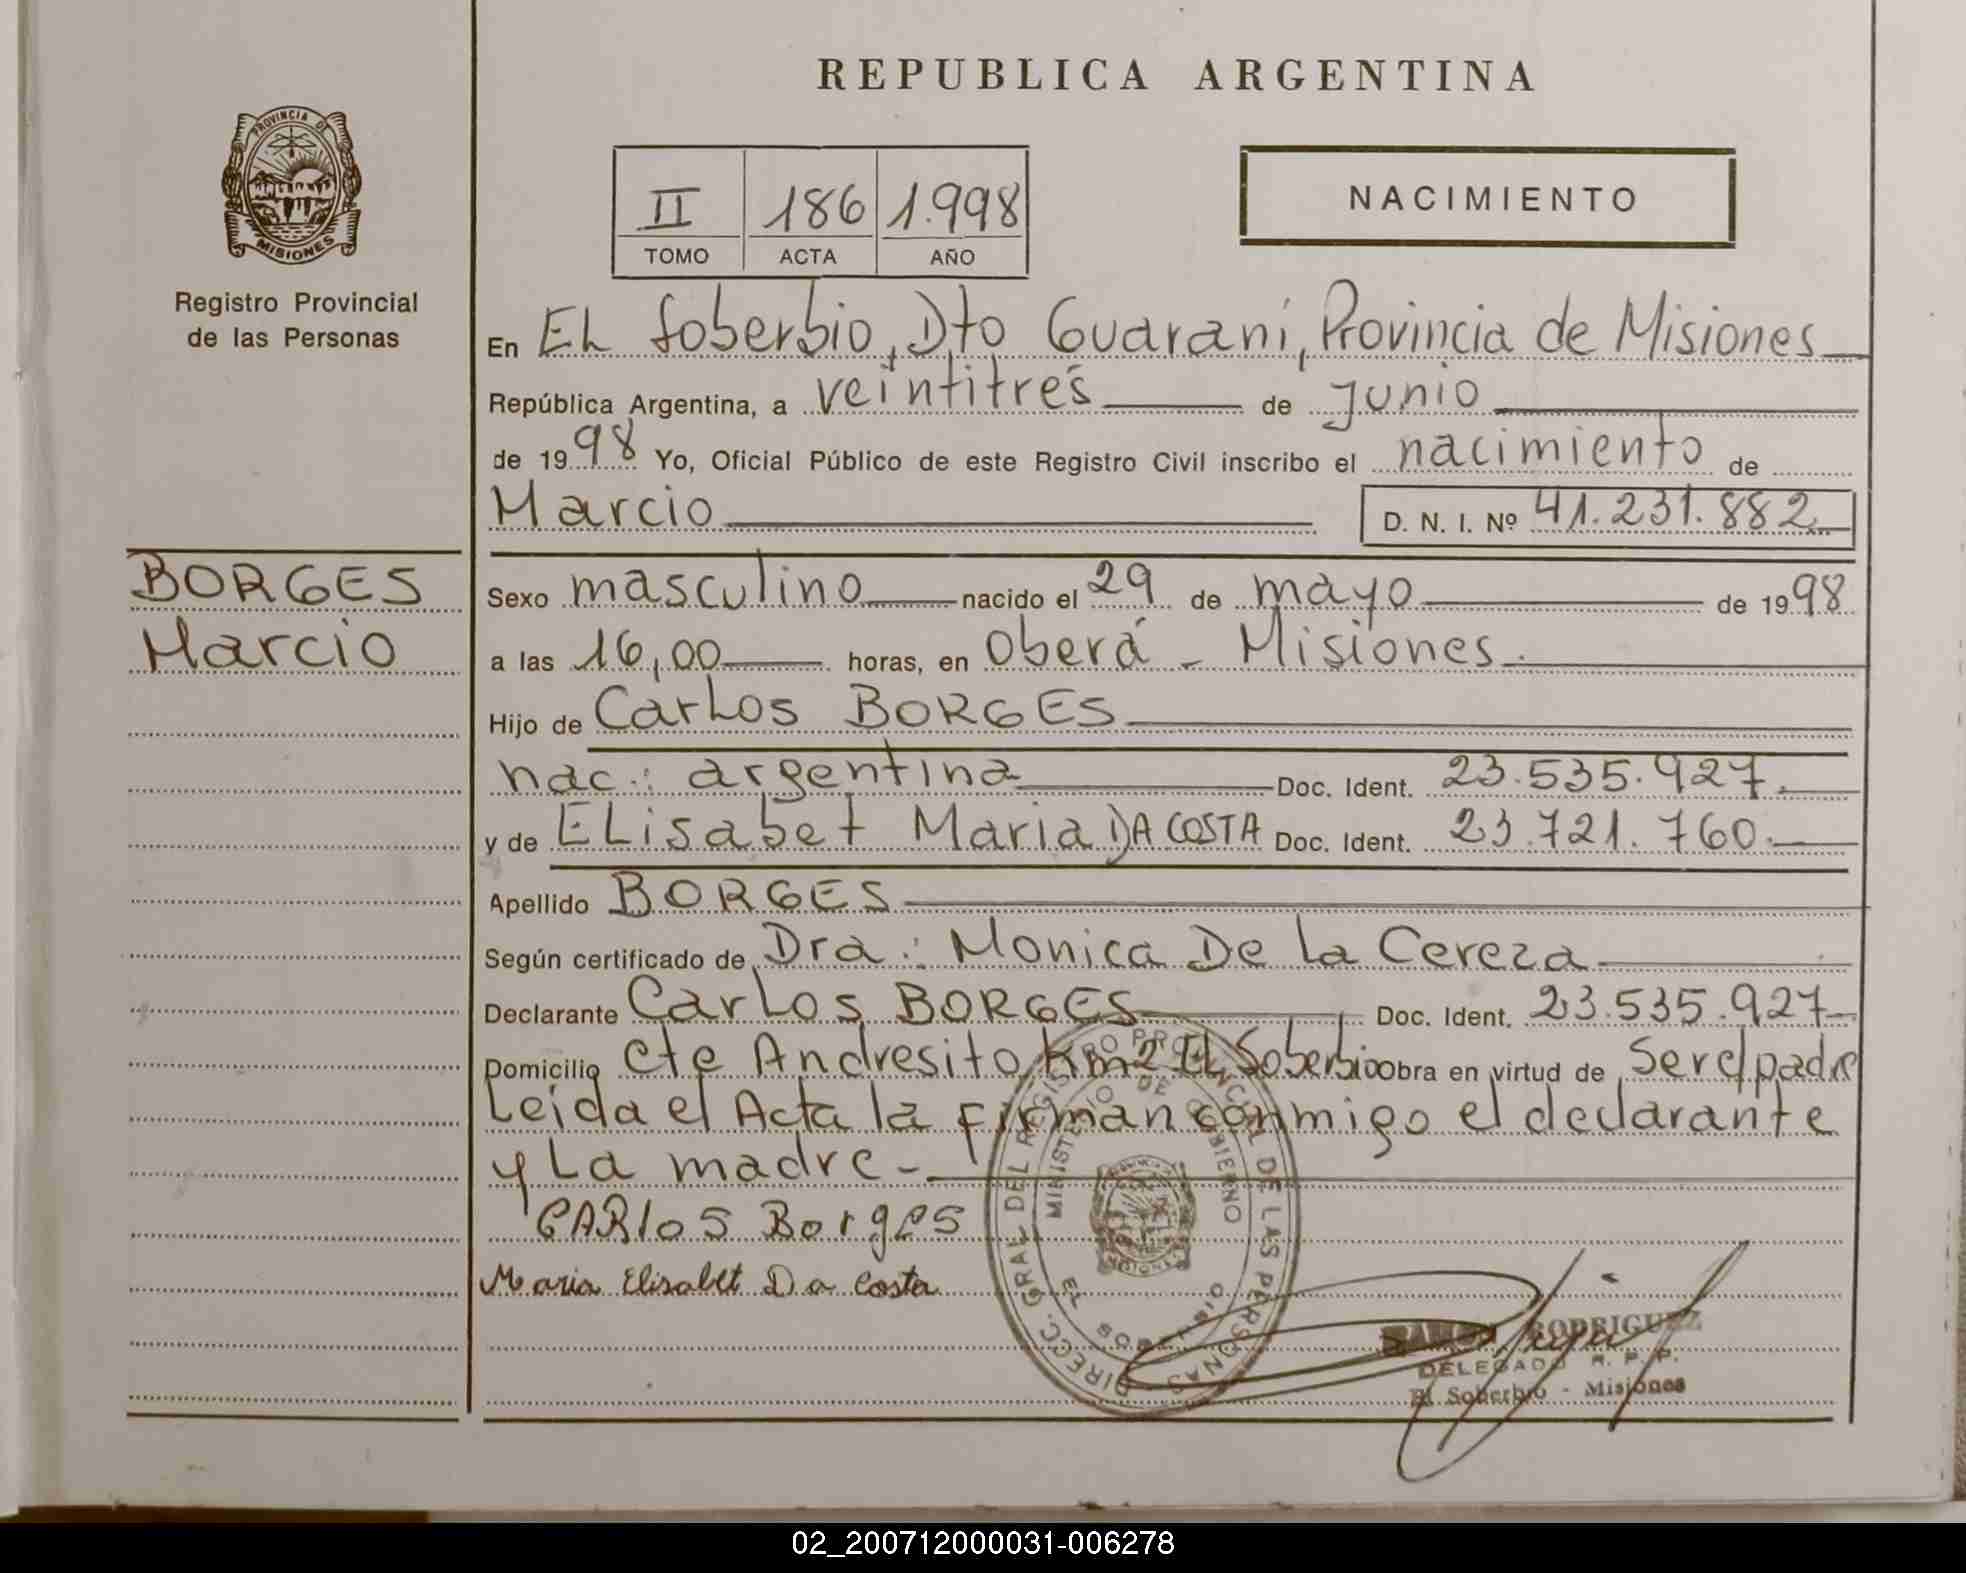 REPUBLICA ARGENTINA
PROVINCIA DE
MISIONES
Registro Provincial
de las Personas
II 186 1.998
TOMO ACTA AÑO
NACIMIENTO
En EL Soberbio, Dto Guaraní, Provincia de Misiones
República Argentina, a veintitrés de junio
de 1998 Yo, Oficial Público de este Registro Civil inscribo el nacimiento de
Marcio D. N. I. Nº 41.231.882
BORGES
Marcio
Sexo masculino nacido el 29 de mayo de 1998
a las 16,00 horas, en Oberá - Misiones.
Hijo de Carlos BORGES
nac.: argentina Doc. Ident. 23.535.927.
y de ELisabet Maria DA COSTA Doc. Ident. 23.721.760.
Apellido BORGES
Según certificado de Dra.: Monica De La Cereza
Declarante Carlos BORGES Doc. Ident. 23.535.927
Domicilio Cte Andresito Km2 EL Soberbio Obra en virtud de Ser el padre
Leída el Acta la firman conmigo el declarante
y La madre-
CARlos Borges
Maria Elisabet Da Costa
DIRECC. GRAL DEL REGISTRO PROVINCIAL DE LAS PERSONAS
MINISTERIO DE GOBIERNO
EL SOBERBIO
MISIONES
RODRIGUEZ
DELEGADO R. P. P.
El Soberbio - Misiones
02_200712000031-006278